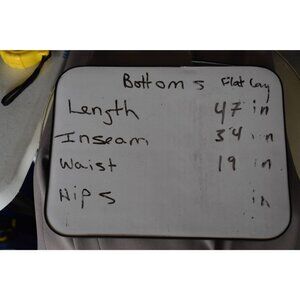 Bottoms Flat Lay
Length 47 in
Inseam 34 in
Waist 19 in
Hips in